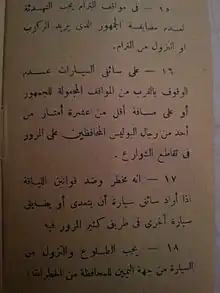 ١٥ – في مواقف الترام يجب التهدئة
لعدم مضايقة الجمهور الذي يريد الركوب
او النزول من الترام.
١٦ – على سائقي السيارات عدم
الوقوف بالقرب من المواقف المجعولة للجمهور
أو على مسافة أقل من عشرة أمتار من
أحد من رجال البوليس المحافظين على المرور
في تقاطع الشوارع.
١٧ – انه مخطر وضد قوانين اللياقة
اذا أراد سائق سيارة أن يتعدى أو يضايق
سيارة أخرى في طريق كثير المرور فيه
١٨ – يجب الطلوع والنزول من
السيارة من جهة اليمين للمحافظة من الخطر